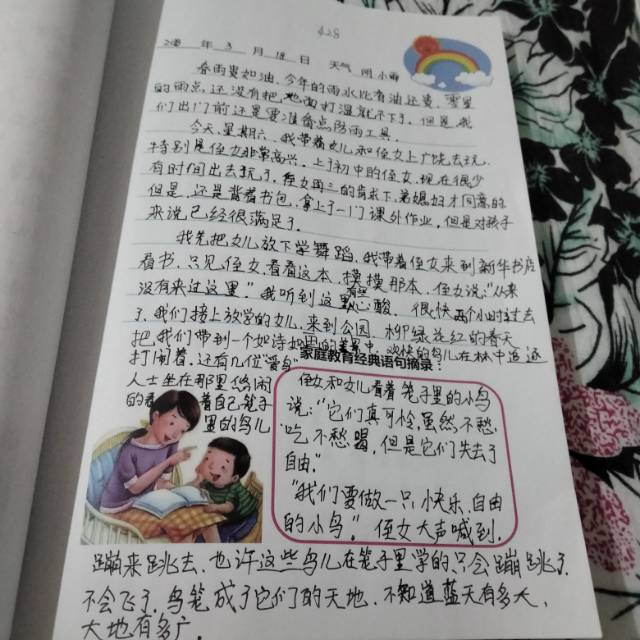 428
年 3 月 18 日 天气 阴 小雨
春雨贵如油，今年的雨水比有油还贵，零星
的雨点，还没有把地面打湿就不下了，但是我
们出门前还是要准备点防雨工具。
今天，星期六，我带着女儿和侄女上广陵去玩，
特别是侄女非常高兴，上了初中的侄女，现在很少
有时间出去玩了，侄女再三的央求下，弟媳妇才同意的
但是，还是背着书包，拿上了一门课外作业，但是对孩子
来说已经很满足了。
我先把女儿放下学舞蹈，我带着侄女来到新华书店
看书，只见侄女看看这本，摸摸那本，侄女说："从来
没有来过这里"我听到这里心酸，很快两个小时过去
了，我们接上放学的女儿，来到公园，柳绿花红的春天
把我们带到一个如诗如画的美景中，欢快的鸟儿在林中追逐
打闹着，还有几位爱鸟
家庭教育经典语句摘录：
人士坐在那里悠闲
的看着自己笼子
里的鸟儿
侄女和女儿看着笼子里的小鸟
说："它们真可怜，虽然不愁
吃，不愁喝，但是它们失去了
自由。"
"我们要做一只快乐，自由
的小鸟"。侄女大声喊到。
蹦来跳去，也许这些鸟儿在笼子里学的只会蹦跳了，
不会飞了，鸟笼成了它们的天地，不知道蓝天有多大，
大地有多广。